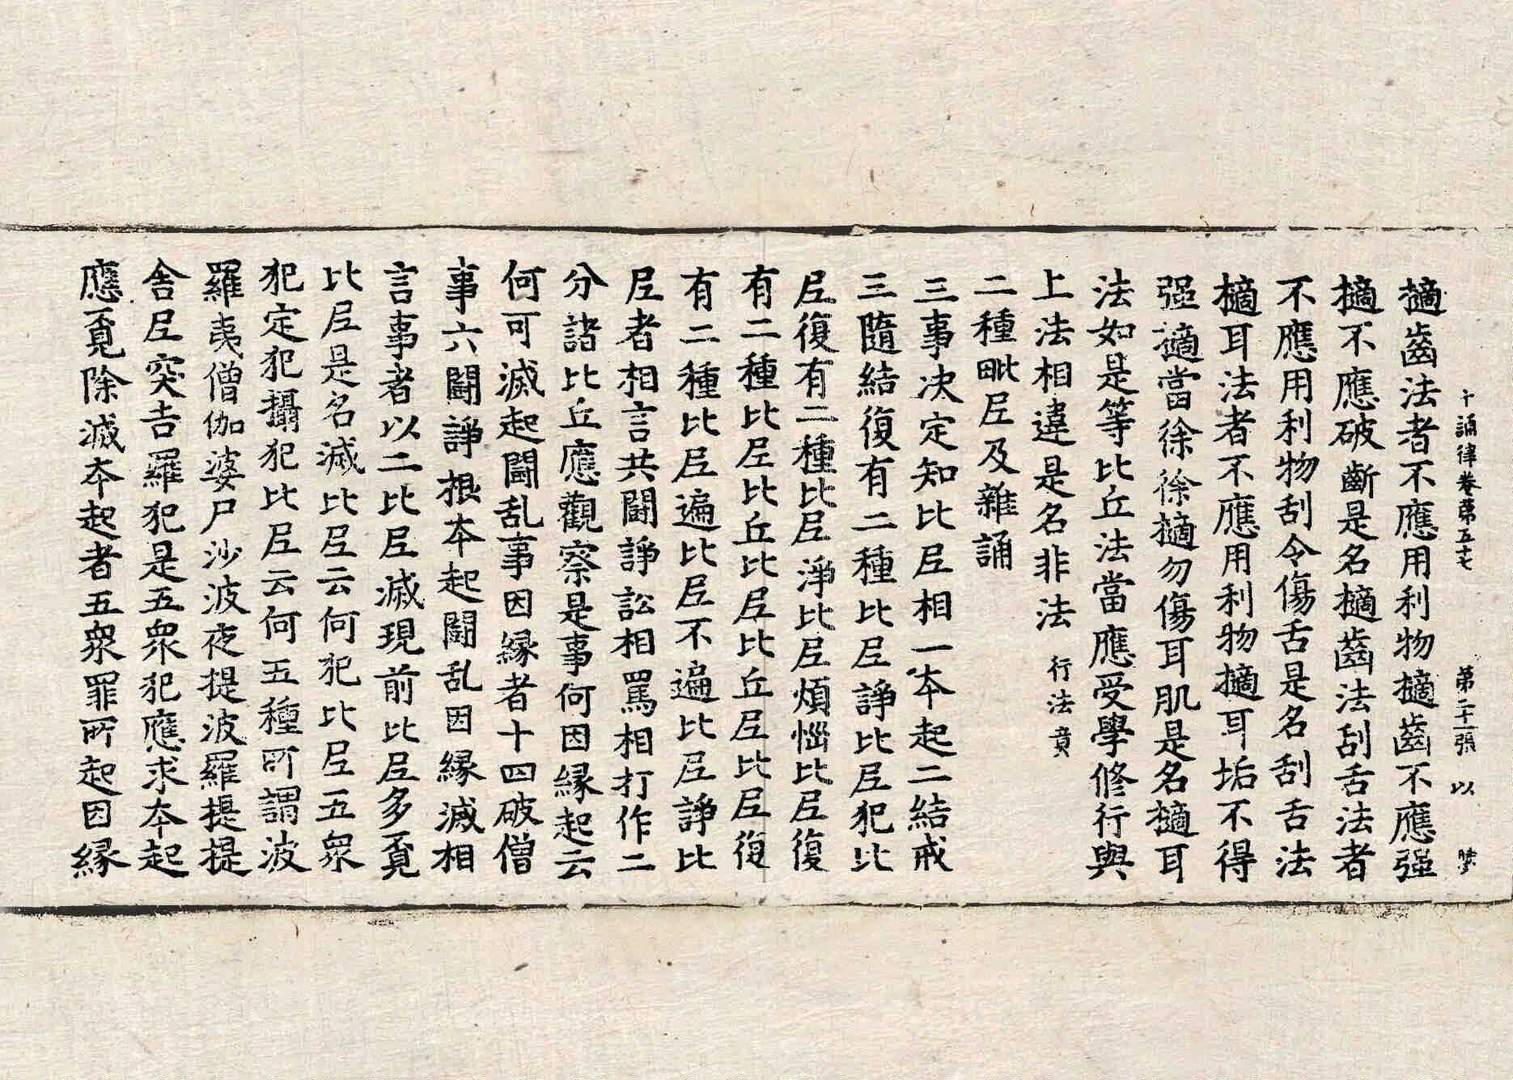 十誦律卷第五十七 第二十一張 以
擿齒法者不應用利物擿齒不應强
擿不應破齗是名擿齒法刮舌法者
不應用利物刮令傷舌是名刮舌法
擿耳法者不應用利物擿耳垢不得
强擿當徐徐擿勿傷耳肌是名擿耳
法如是等比丘法當應受學修行與
上法相違是名非法 行法竟
二種毗尼及雜誦
三事決定知比尼相一本起二結戒
三隨結復有二種比尼諍比尼犯比
尼復有二種比尼淨比尼煩惱比尼復
有二種比尼比丘比尼比丘尼比尼復
有二種比尼遍比尼不遍比尼諍比
尼者相言共鬪諍訟相罵相打作二
分諸比丘應觀察是事何因緣起云
何可滅起鬪乱事因緣者十四破僧
事六鬪諍根本起鬪乱因緣滅相
言事者以二比尼滅現前比尼多覓
比尼是名滅比尼云何犯比尼五衆
犯定犯攝犯比尼云何五種所謂波
羅夷僧伽婆尸沙波夜提波羅提提
舍尼突吉羅犯是五衆犯應求本起
應覓除滅本起者五衆罪所起因緣